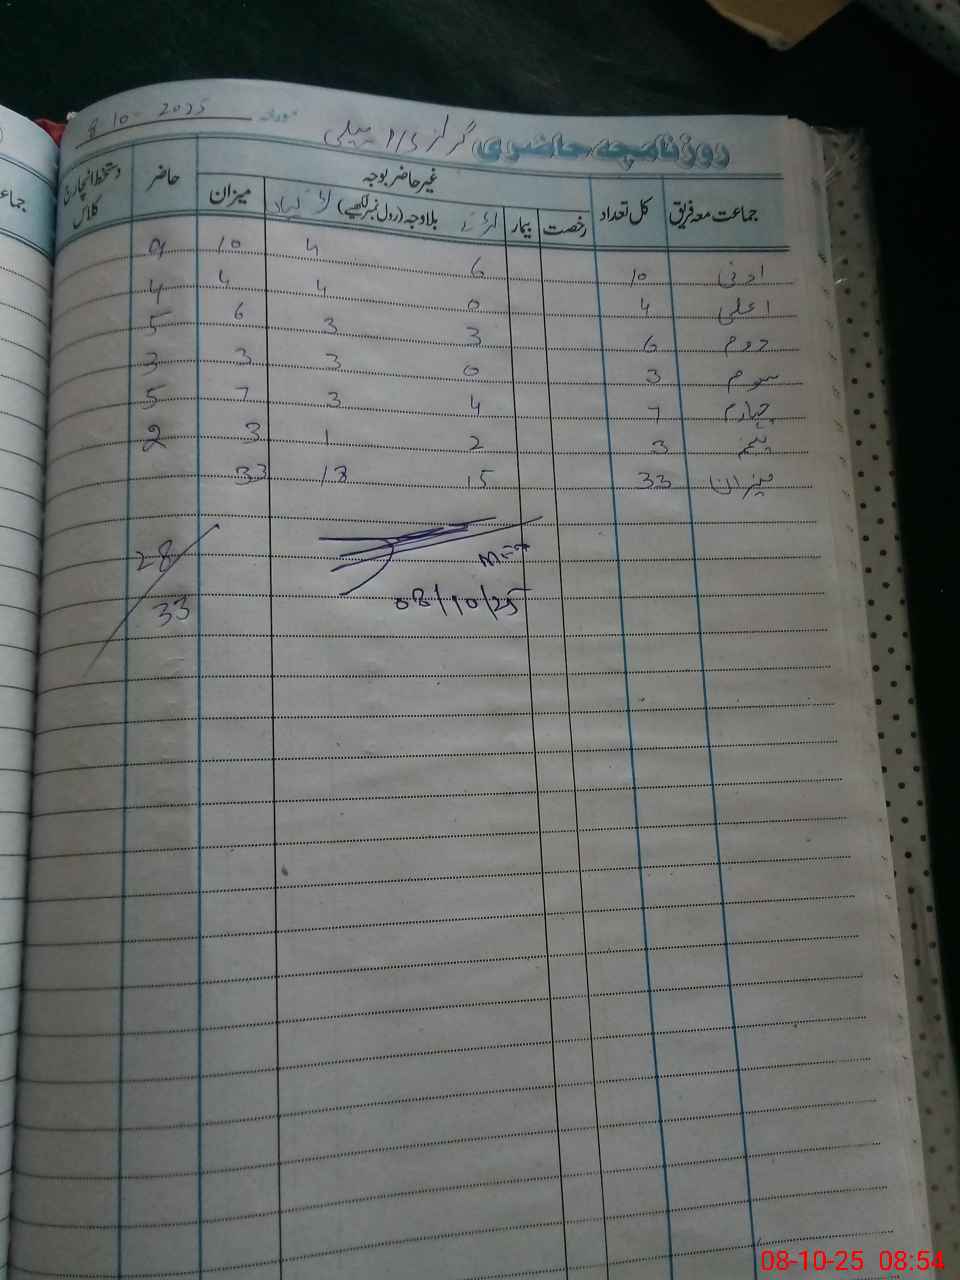 روزنامچہ حاضری گرلز مورخہ 8-10-2025
جماعت معہ فریق کل تعداد غیر حاضر بوجہ حاضر دستخط انچارج کلاس
رخصت بیمار بلاوجہ (رول نمبر لکھیے) میزان
ادنی 10 6 4 10 9
اعلی 4 0 4 4 4
دوم 6 3 3 6 5
سوم 3 0 3 3 3
چہارم 7 4 3 7 5
پنجم 3 2 1 3 2
میزان 33 15 18 33
28
33
08/10/25
جما
08-10-25 08:54